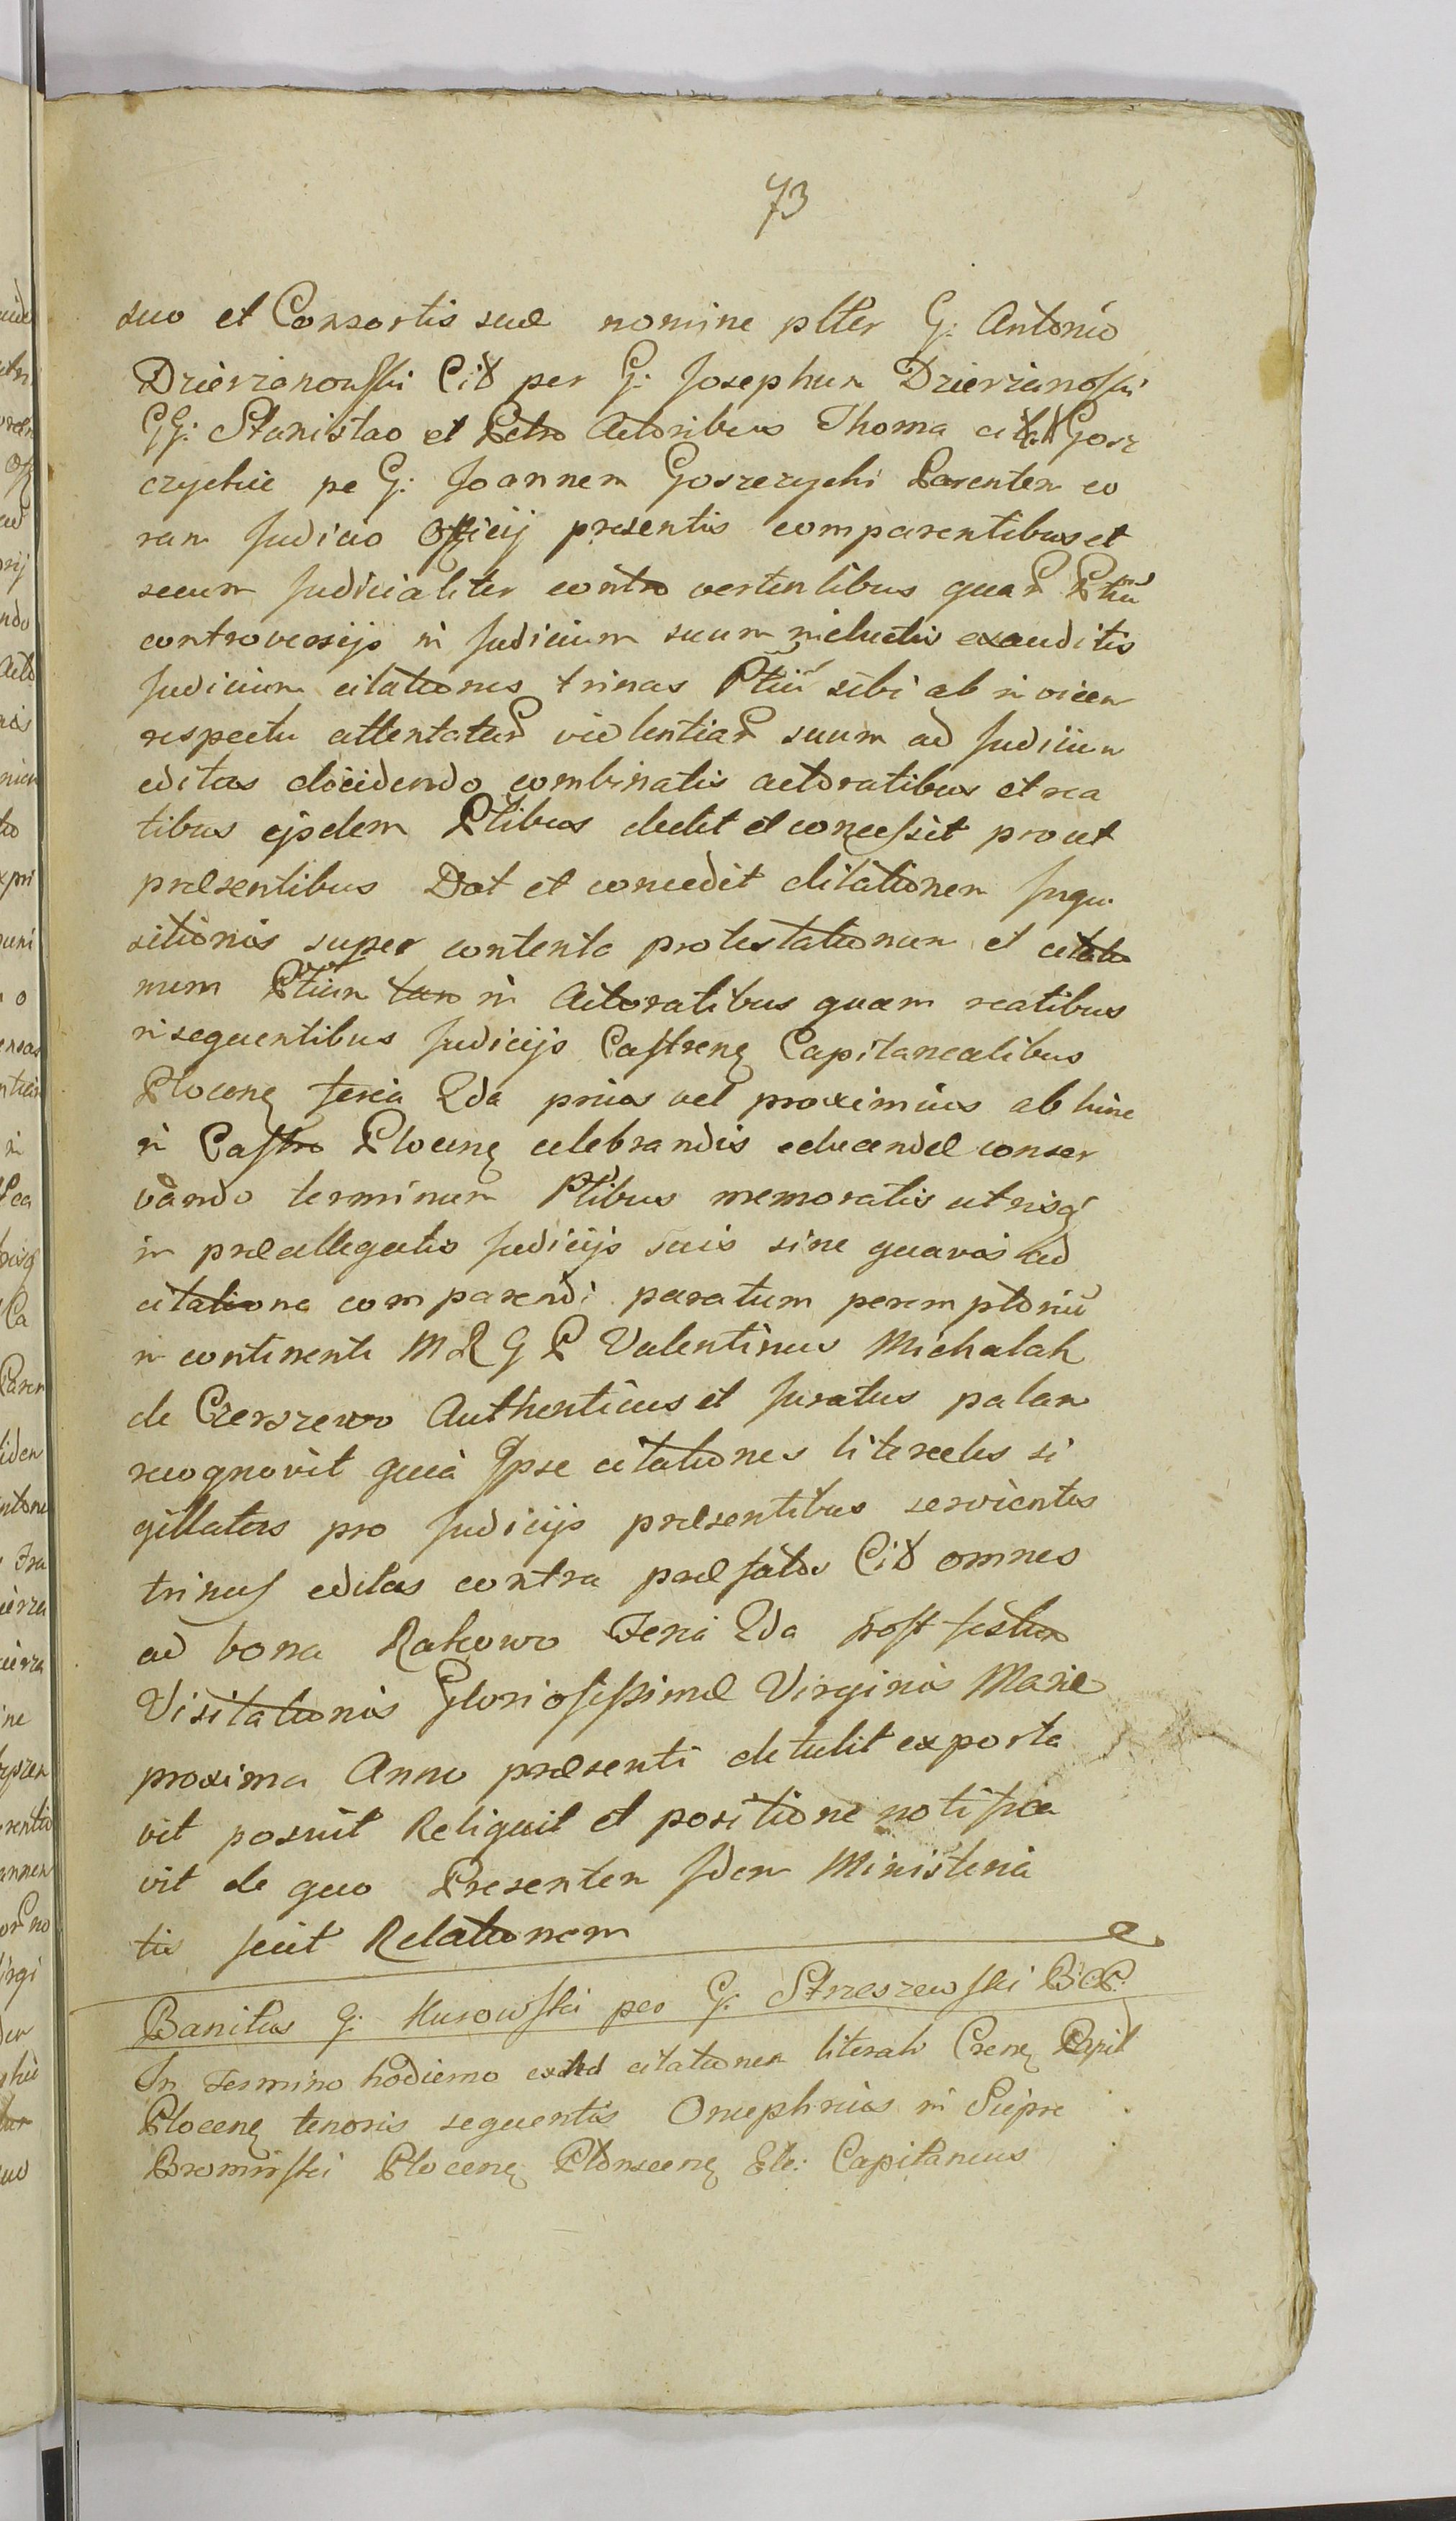 73
suo et Consortis suæ nomine plter G: Antonio
Dzierzanowski Citt per G: Josephum Dzierzanoski
GG: Stanislao et Petro Actoribus Thoma citat Gosz
czyckie pe G: Joannem Goszczycki Parentem co
ram Judicio Officij presentis comparentibus et
secum Judicialiter contro vertentibus quar Ptiu
controversijs in Judicium suum inductis exauditis
Judicium citationes trinas Ptiu sibi ab in vicem
respectu attentatar violentiar suum ad Judicium
editas decidendo combinatis actoratibus et rea
tibus ejsdem Ptibus dedit et concessit prout
præsentibus Dat et concedit dilationem Inqui
sitionis super contenta protestationum et citatio
num Ptium tam in Actoratibus quam reatibus
in sequentibus Judicijs Castrenę Capitanealibus
Plocenę feria 2da prius vel proximius ab hinc
in Castro Plocenę celebrandis educendæ conser
vando terminum Ptibus memoratis utrisq
in præallegatis Judicijs suis sine quavis ad
citatione comparendi paratum peremptoriu
in continenti M R G P Valentinus Michalak
de Czerszewo Authenticus et Juratus palam
recognovit quia Ipse citationes literales si
gillatas pro Judicijs præsentibus servientes
trinas editas contra præfatos Citt omnes
ad bona Rakowo Feria 2da post festum
Visitationis Gloriosissimæ Virginis Mariæ
proxima Anno præsenti detulit exporta
vit posuit Reliquit et positione notifica
vit de quo Presentem Idem Ministeria
lis fecit Relationem
Banitus G: Kurowski per G: Strzeszewski B: C: P:
In Termino hodierno ex citationem literali Crenę Capit
Plocenę tenoris sequentis Onuphrius in Sieprc
Bromirski Plocenę Plonscenę Etc: Capitaneus